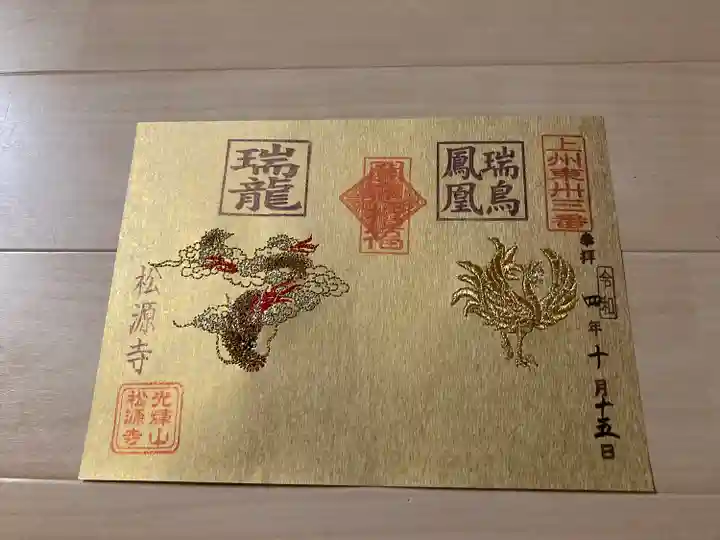 上州東卅三番
奉拝
令和
四年十月十五日
瑞鳥
鳳凰
瑞龍
松源寺
光輝山
松源寺